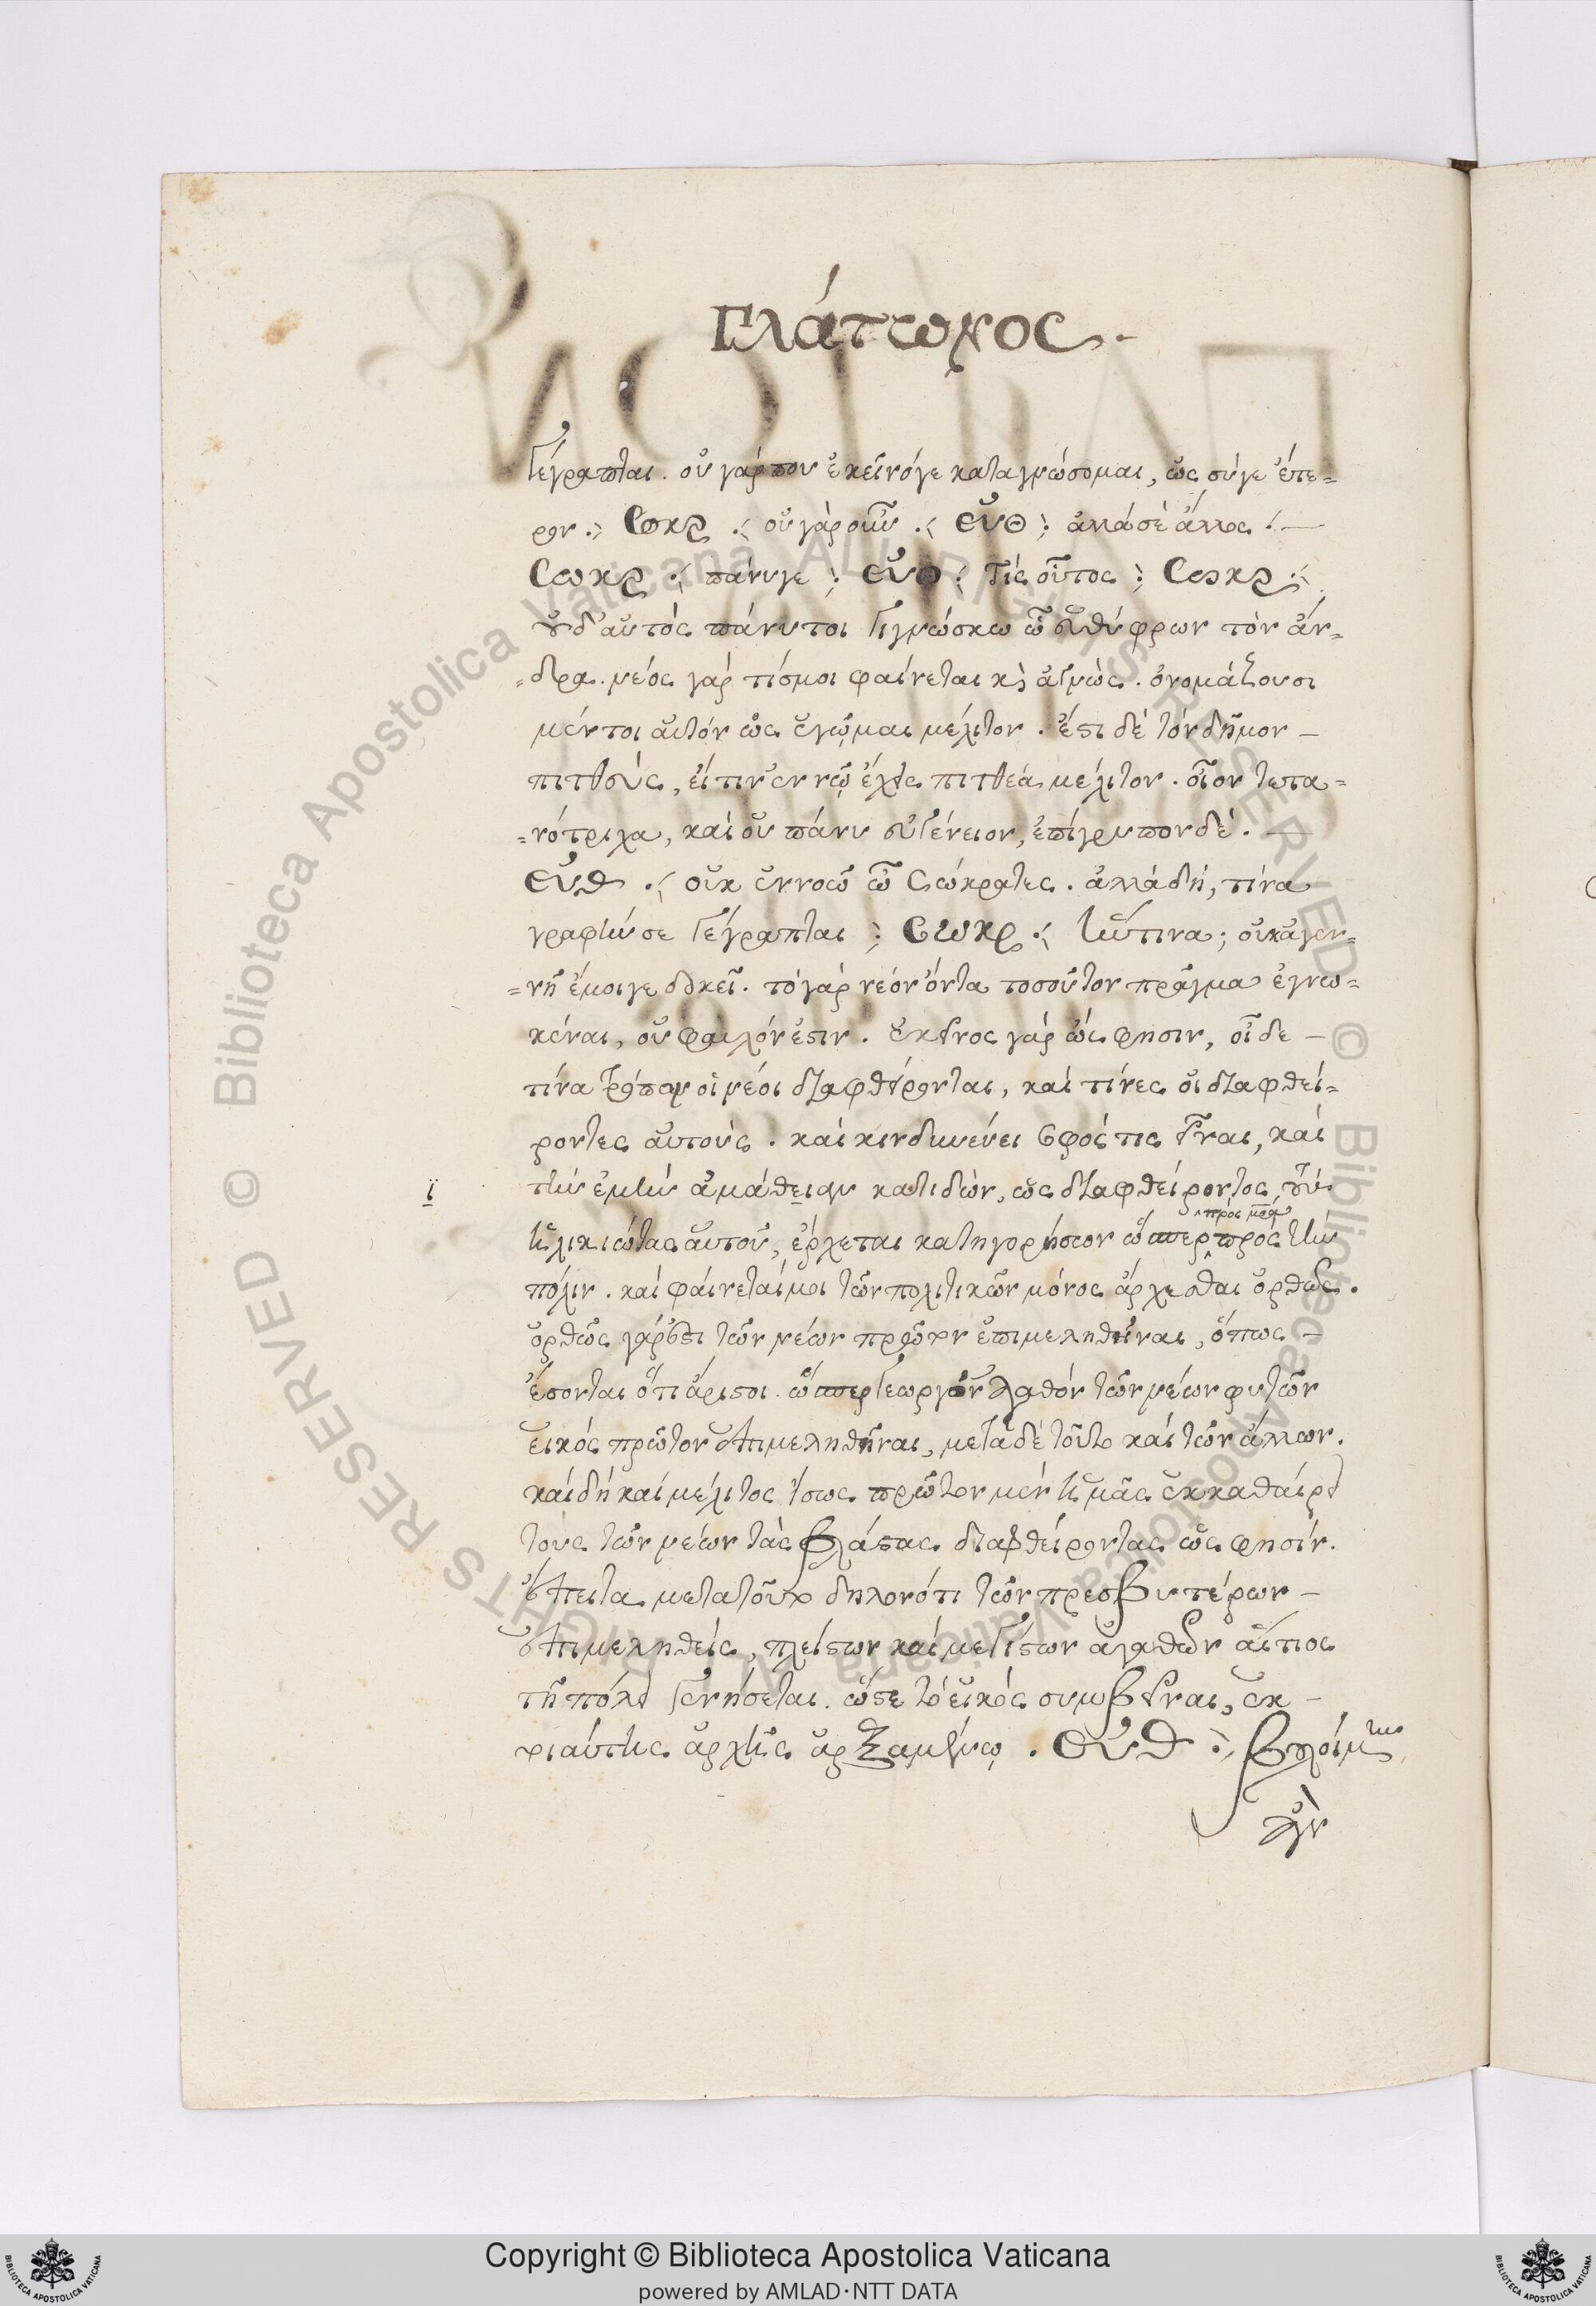 Πλάτωνος.
Γέγραπται. οὐ γάρ που ἐκεῖνόγε καταγνώσομαι, ὡς σύγε ἕτε-
ρον : Σωκρ : οὐ γὰρ οὖν : Εὐθ : ἀλλὰ σὲ ἄλλος : —
Σωκρ : πάνυγε : Εὐθ : Τίς οὗτος : Σωκρ :
οὐδ' αὐτὸς πάνυ τοι Γιγνώσκω ὦ εὐθύφρων τὸν ἄν-
-δρα. νέος γάρ τίς μοι φαίνεται κὶ ἀγνώς. ὀνομάζουσι
μέντοι αὐτὸν ὡς ἐγῷμαι μέλιτον. ἔστι δὲ τὸν δῆμον —
πιτθεύς, εἴ τιν' ἐν νῷ ἔχεις πιτθέα μέλιτον. οἷον τετα-
-νότριχα, καὶ οὐ πάνυ εὐγένειον, ἐπίγρυπον δέ. —
Εὐθ : οὐκ ἐννοῶ ὦ Σώκρατες. ἀλλὰ δή, τίνα
γραφήν σε Γέγραπται : Σωκρ : ἥντινα; οὐκ ἀγεν-
-νῆ ἔμοιγε δοκεῖ. τὸ γὰρ νέον ὄντα τοσοῦτον πρᾶγμα ἐγνω-
κέναι, οὐ φαῦλόν ἐστιν. ἐκεῖνος γάρ ὥς φησιν, οἶδε —
τίνα τρόπον οἱ νέοι διαφθείρονται, καὶ τίνες οἱ διαφθεί-
ροντες αὐτούς. καὶ κινδυνεύει σοφός τις εἶναι, καὶ
ϊ τὴν ἐμὴν ἀμάθειαν κατιδών, ὡς διαφθείροντος τοὺς
πρὸς μρα
ἡλικιώτας αὐτοῦ, ἔρχεται κατηγορήσων ὥσπερ πρὸς τὴν
πόλιν. καὶ φαίνεταί μοι τῶν πολιτικῶν μόνος ἄρχεσθαι ὀρθῶς.
ὀρθῶς γάρ ἐστι τῶν νέων πρῶτον ἐπιμεληθῆναι, ὅπως —
ἔσονται ὅτι ἄριστοι. ὥσπερ Γεωργὸν ἀγαθὸν τῶν νέων φυτῶν
εἰκός πρῶτον ἐπιμεληθῆναι, μετὰ δὲ τοῦτο καὶ τῶν ἄλλων.
καὶ δὴ καὶ μέλιτος ἴσως πρῶτον μὲν ἡμᾶς ἐκκαθαίρει
τοὺς τῶν νέων τὰς βλάστας διαφθείροντας ὥς φησίν.
ἔπειτα μετὰ τοῦτο δηλονότι τῶν πρεσβυτέρων —
ἐπιμεληθείς, πλείστων καὶ μεγίστων ἀγαθῶν αἴτιος
τῇ πόλει Γενήσεται. ὥστε τὸ εἰκός συμβῆναι, ἐκ —
τοιαύτης ἀρχῆς ἀρξαμένῳ. Εὐθ : βουλοίμην
ἂν